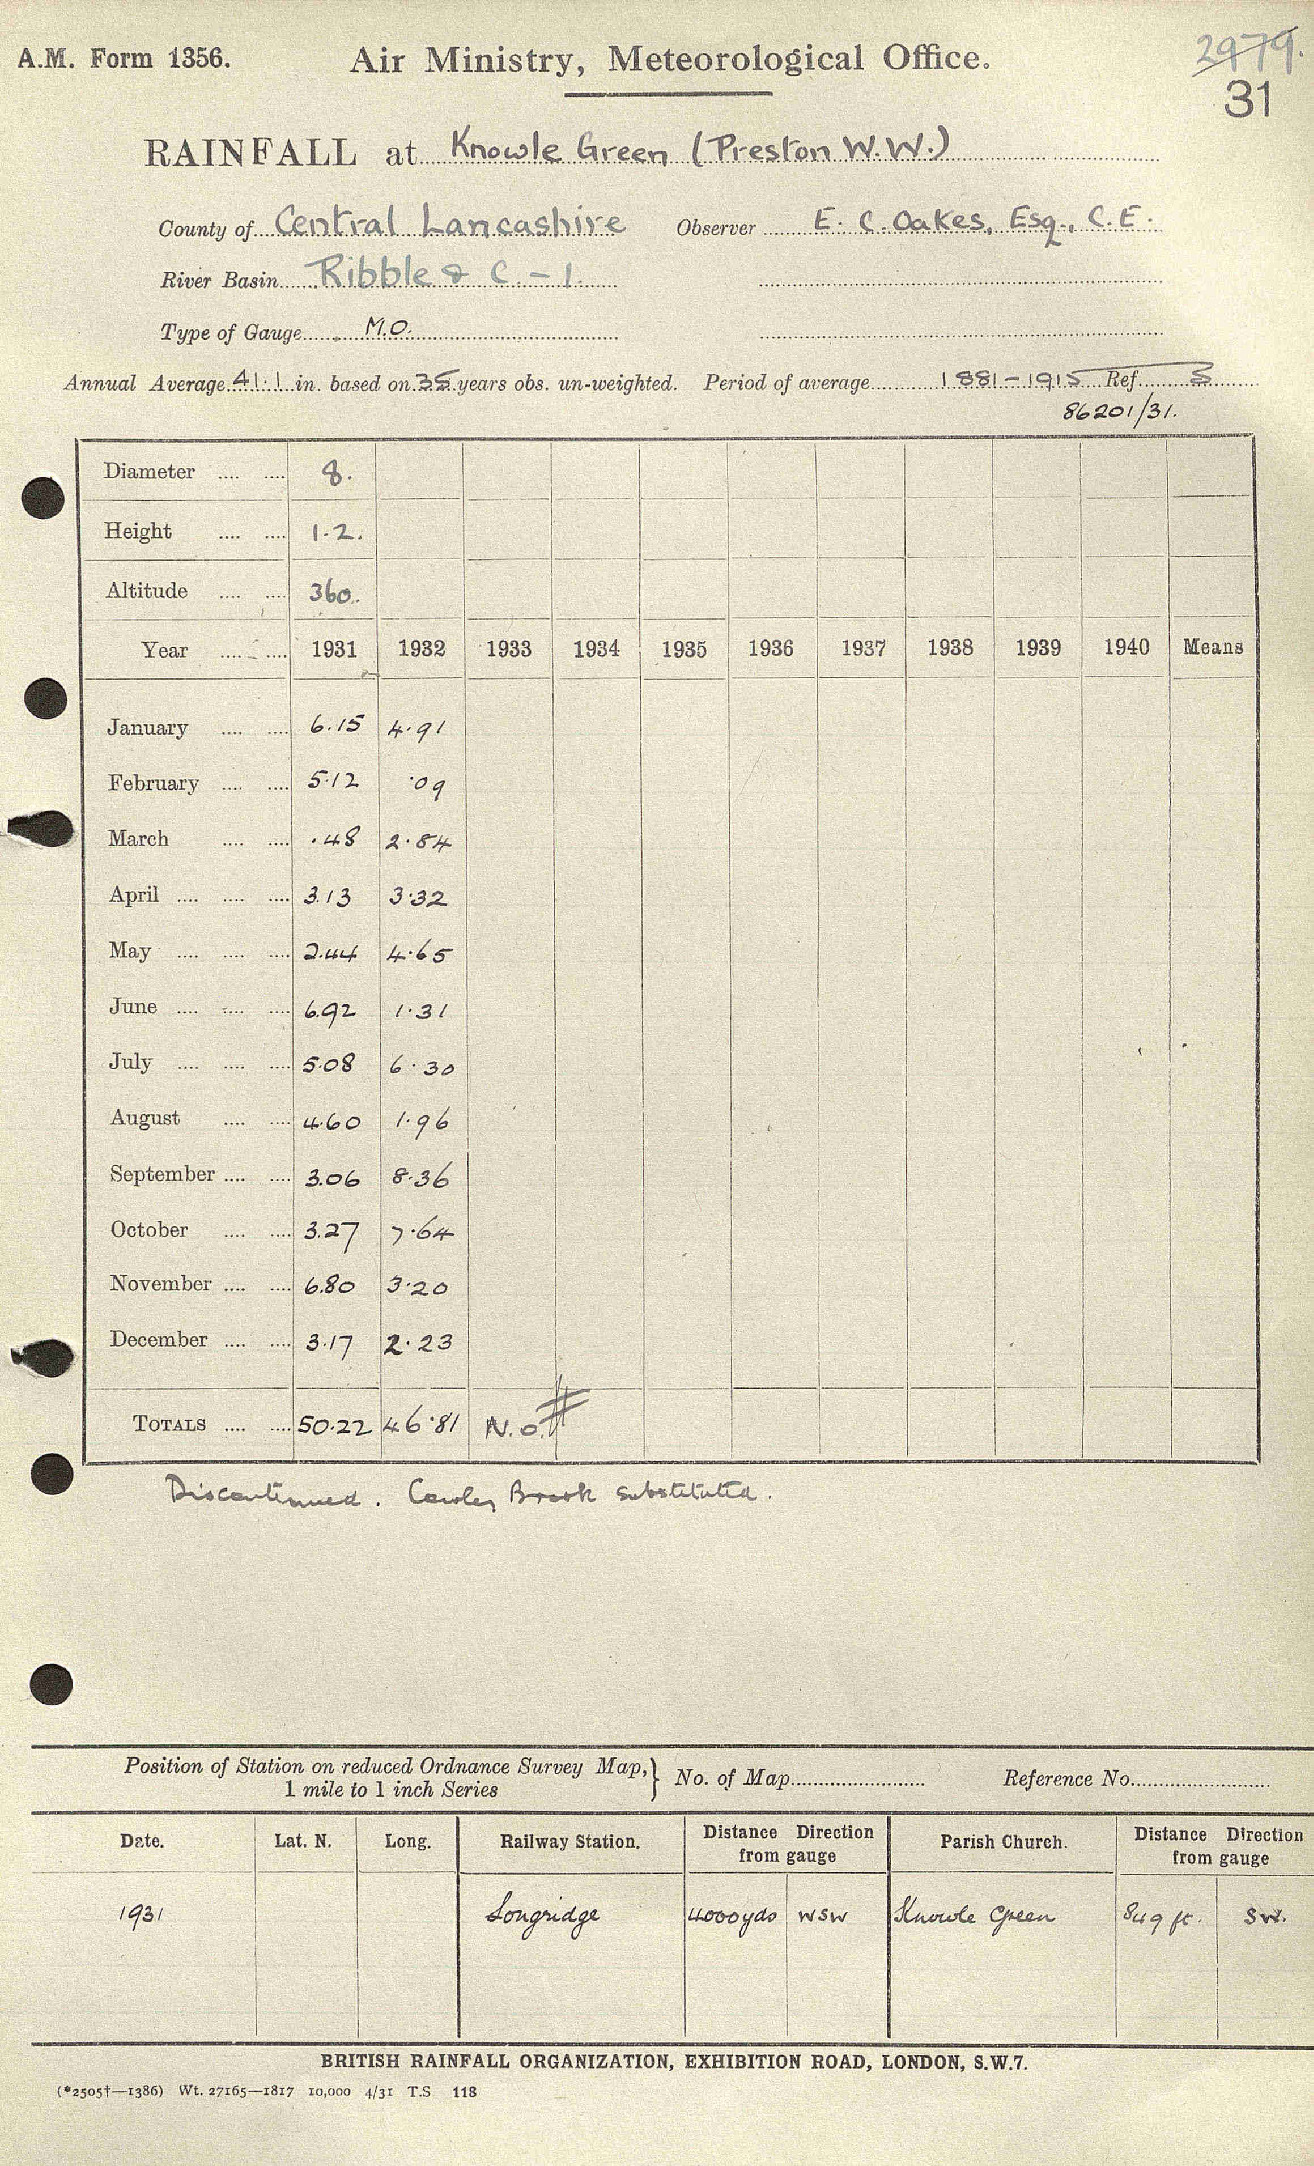 A.M. Form 1356. Air Ministry, Meteorological Office. 2979.
31
RAINFALL at Knowle Green (Preston W.W.)
County of Central Lancashire Observer E. C. Oakes, Esq., C.E.
River Basin Ribble & C. - 1.
Type of Gauge M.O.
Annual Average 41.1 in. based on 35 years obs. un-weighted. Period of average 1881-1915 Ref. S
86201/31.
Diameter .... .... 8.
Height .... .... 1.2.
Altitude .... .... 360.
Year .... .... 1931 1932 1933 1934 1935 1936 1937 1938 1939 1940 Means
January .... .... 6.15 4.91
February .... .... 5.12 .09
March .... .... .48 2.84
April .... .... .... 3.13 3.32
May .... .... .... 2.44 4.65
June .... .... .... 6.92 1.31
July .... .... .... 5.08 6.30
August .... .... 4.60 1.96
September .... .... 3.06 8.36
October .... .... 3.27 7.64
November .... .... 6.80 3.20
December .... .... 3.17 2.23
TOTALS .... .... 50.22 46.81 N.o.
Discontinued. Cowley Brook substituted.
Position of Station on reduced Ordnance Survey Map, } No. of Map Reference No.
1 mile to 1 inch Series
Date. Lat. N. Long. Railway Station. Distance Direction from gauge Parish Church. Distance Direction from gauge
1931 Longridge 4000 yds WSW Knowle Green 849 ft. SW.
BRITISH RAINFALL ORGANIZATION, EXHIBITION ROAD, LONDON, S.W.7.
(*2505†—1386) Wt. 27165—1817 10,000 4/31 T.S 118